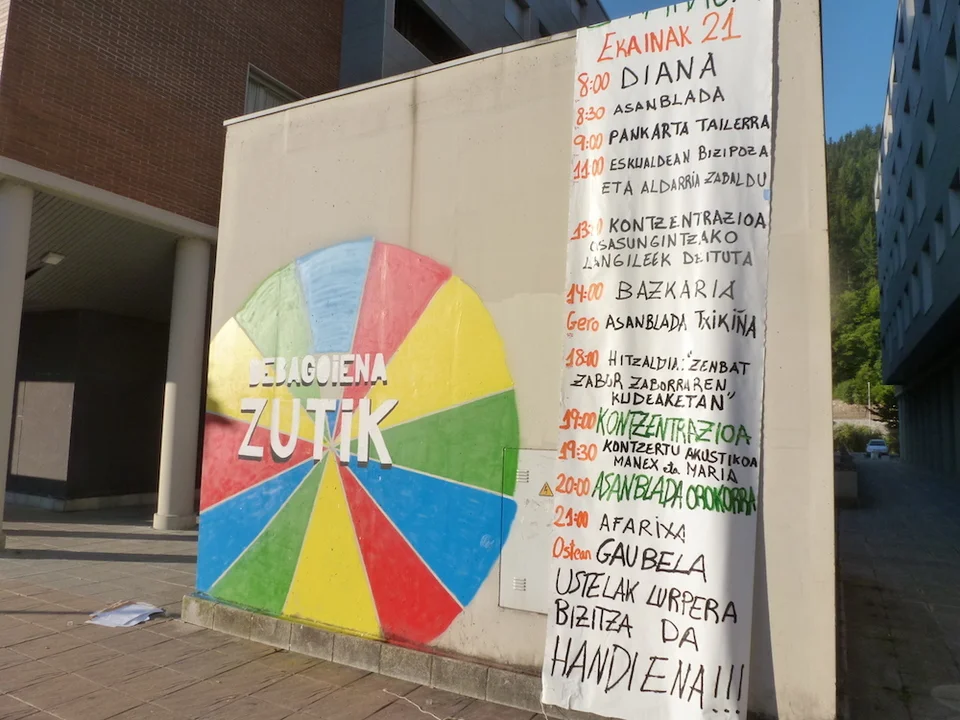 DEBAGOIENA
ZUTIK
EKAINAK 21
8:00 DIANA
8:30 ASANBLADA
9:00 PANKARTA TAILERRA
11:00 ESKUALDEAN BIZIPOZA
ETA ALDARRIA ZABALDU
KONTZENTRAZIOA
OSASUNGINTZAKO
LANGILEEK DEITUTA
14:00 BAZKARIA
Gero ASANBLADA TXIKIÑA
18:00 HITZALDIA: "ZENBAT
ZABOR ZABORRAREN
KUDEAKETAN"
19:00 KONTZENTRAZIOA
19:30 KONTZERTU AKUSTIKOA
MANEX eta MARIA
20:00 ASANBLADA OROKORRA
21:00 AFARIXA
Ostean GAUBELA
USTELAK LURPERA
BIZITZA DA
HANDIENA!!!